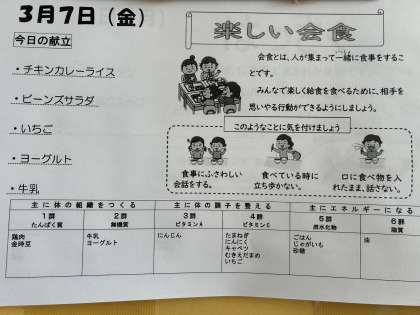 3月7日（金）
今日の献立
・チキンカレーライス
・ビーンズサラダ
・いちご
・ヨーグルト
・牛乳
楽しい会食
会食とは、人が集まって一緒に食事をするこ
とです。
みんなで楽しく給食を食べるために、相手を
思いやる行動ができるようにしましょう。
このようなことに気を付けましょう
食事にふさわしい
会話をする。
食べている時に
立ち歩かない。
口に食べ物を入
れたまま、話さない。
主に体の組織をつくる
主に体の調子を整える
主にエネルギーになる
1群
たんぱく質
2群
無機質
3群
ビタミンA
4群
ビタミンC
5群
炭水化物
6群
脂質
鶏肉
金時豆
牛乳
ヨーグルト
にんじん
たまねぎ
にんにく
キャベツ
むきえだまめ
いちご
ごはん
じゃがいも
砂糖
油